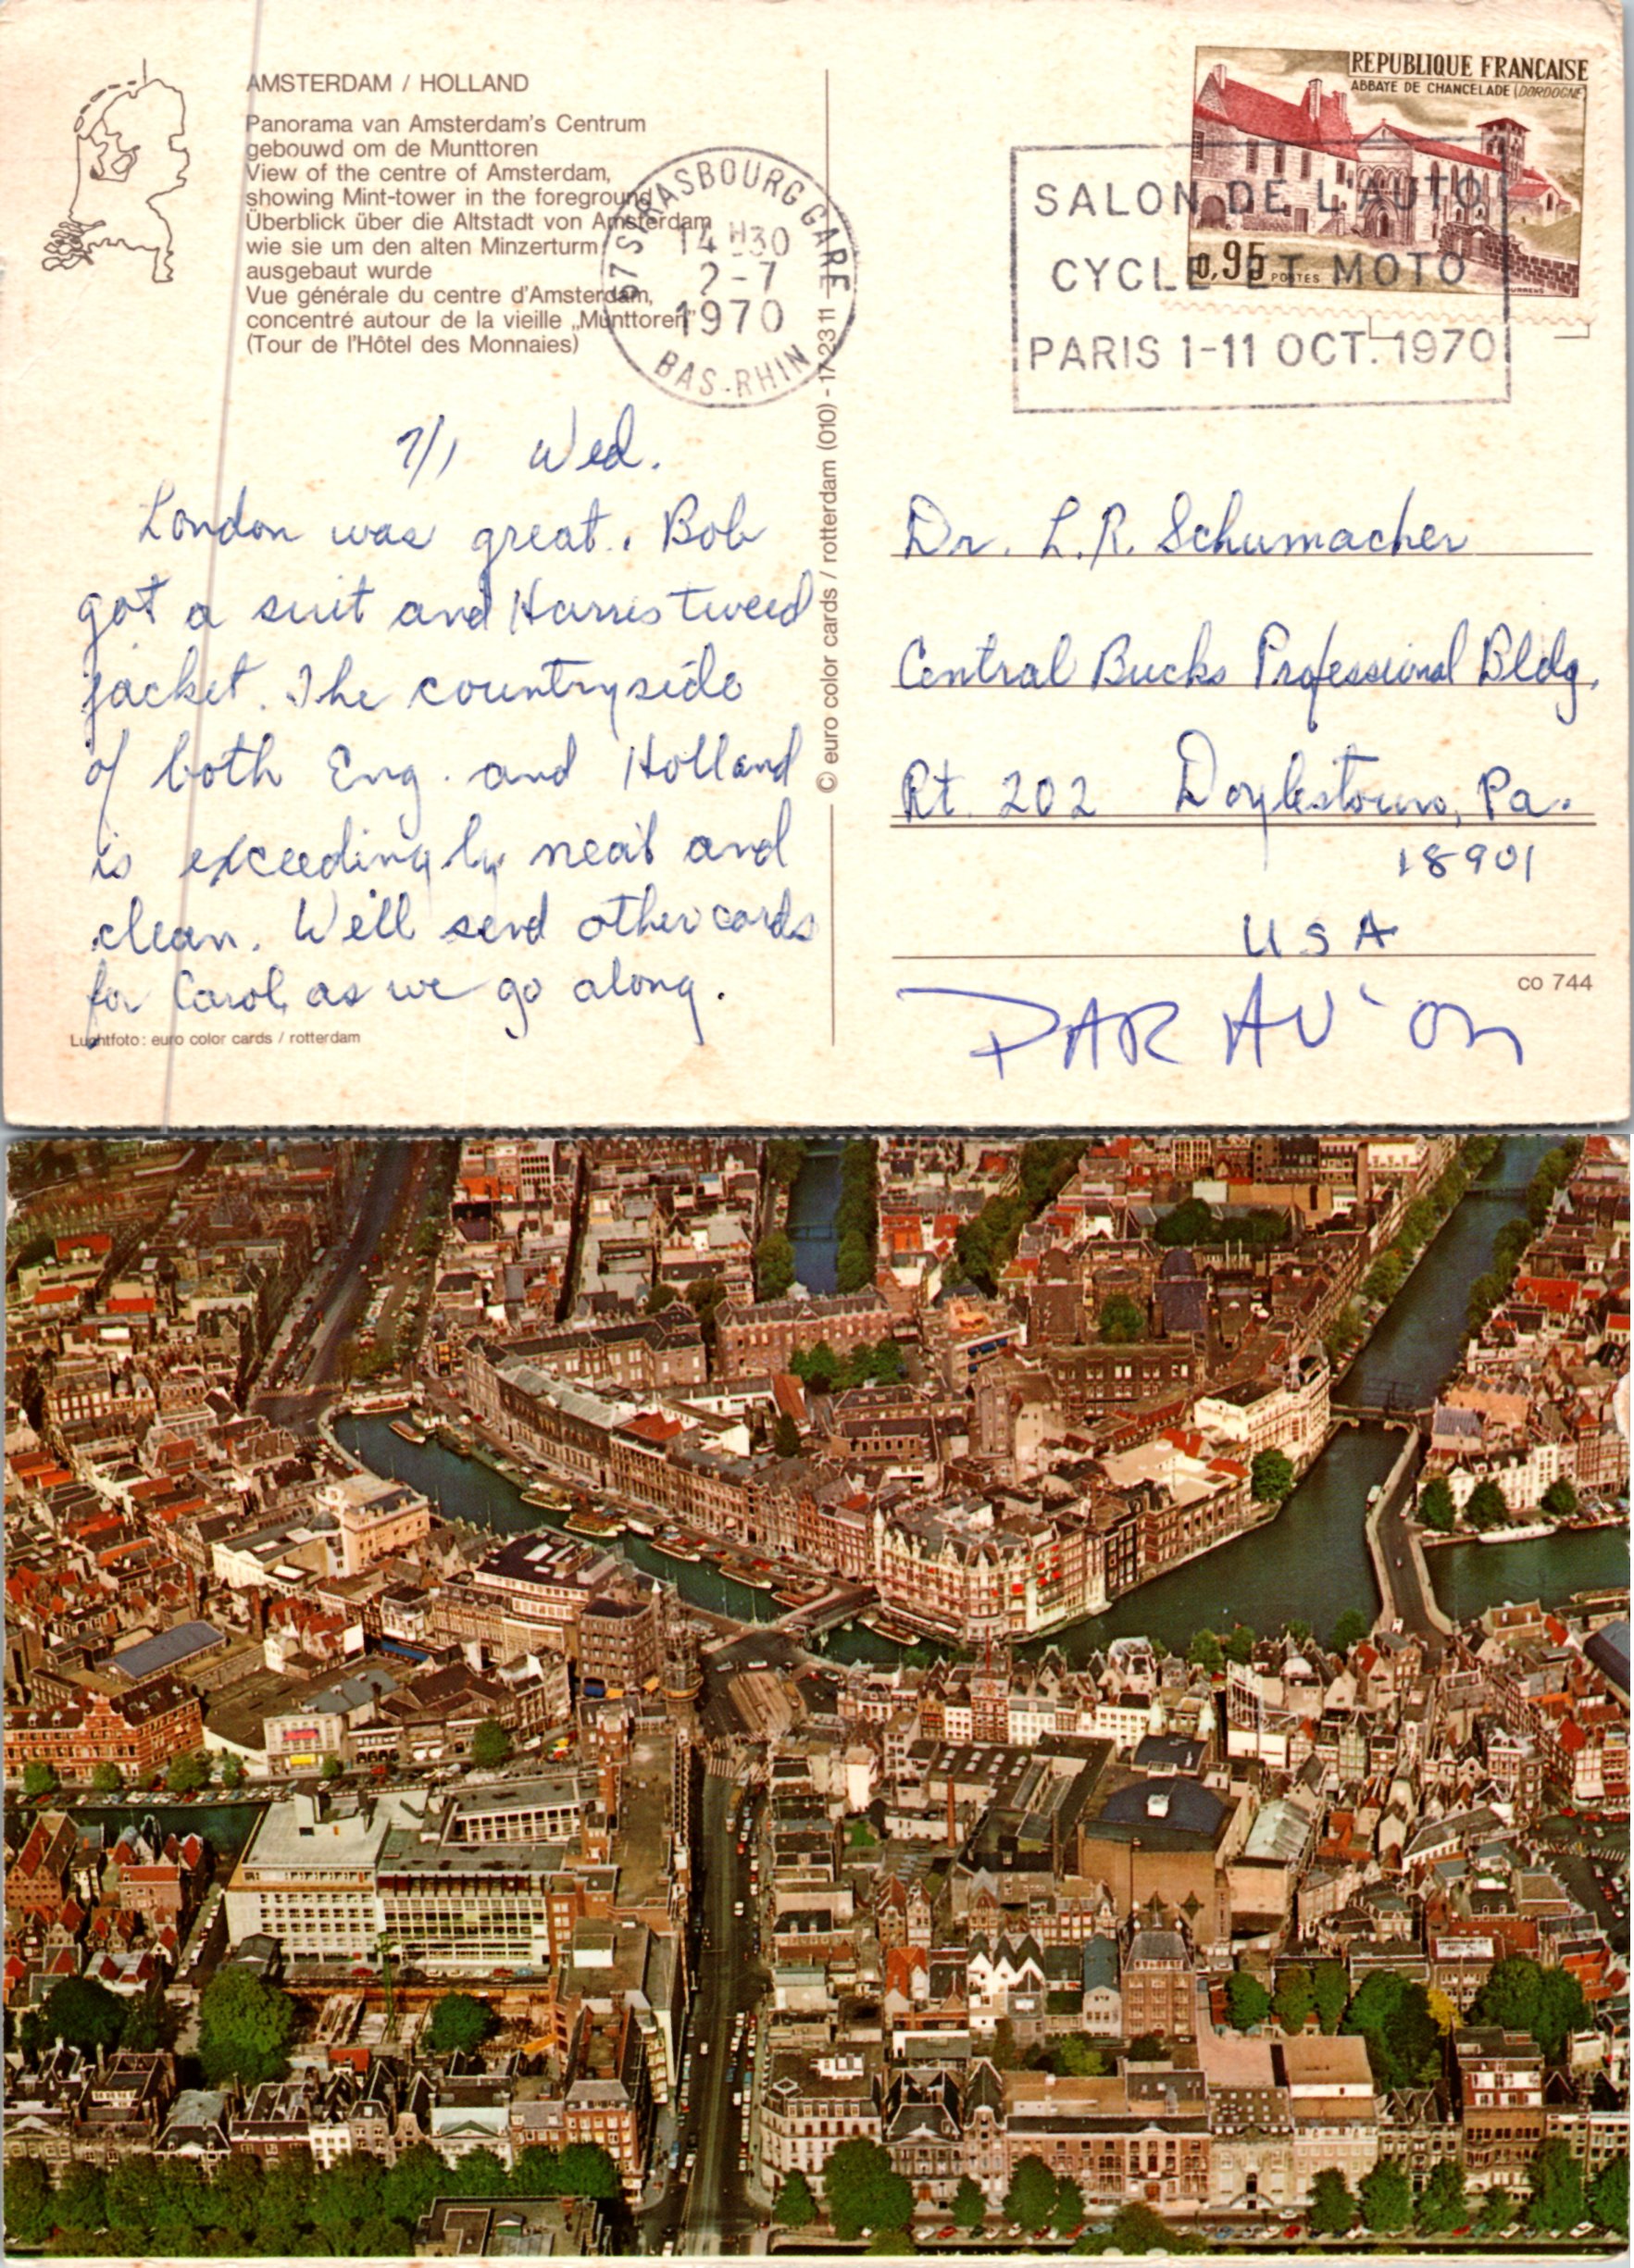 AMSTERDAM / HOLLAND
Panorama van Amsterdam's Centrum
gebouwd om de Munttoren
View of the centre of Amsterdam,
showing Mint-tower in the foreground
Überblick über die Altstadt von Amsterdam
wie sie um den alten Minzerturm
ausgebaut wurde
Vue générale du centre d'Amsterdam,
concentré autour de la vieille „Munttoren"
(Tour de l'Hôtel des Monnaies)
67 STRASBOURG GARE
14 H30
2-7
1970
BAS-RHIN
REPUBLIQUE FRANCAISE
ABBAYE DE CHANCELADE (DORDOGNE)
0,95 POSTES
SALON DE L'AUTO
CYCLE ET MOTO
PARIS 1-11 OCT. 1970
7/1 Wed.
London was great. Bob
got a suit and Harris tweed
jacket. The countryside
of both Eng. and Holland
is exceedingly neat and
clean. We'll send other cards
for Carol as we go along.
Luchtfoto: euro color cards / rotterdam
© euro color cards / rotterdam (010) - 17 23 11
Dr. L.R. Schumacher
Central Bucks Professional Bldg.
Rt. 202 Doylestown, Pa.
18901
USA
co 744
PAR AVION